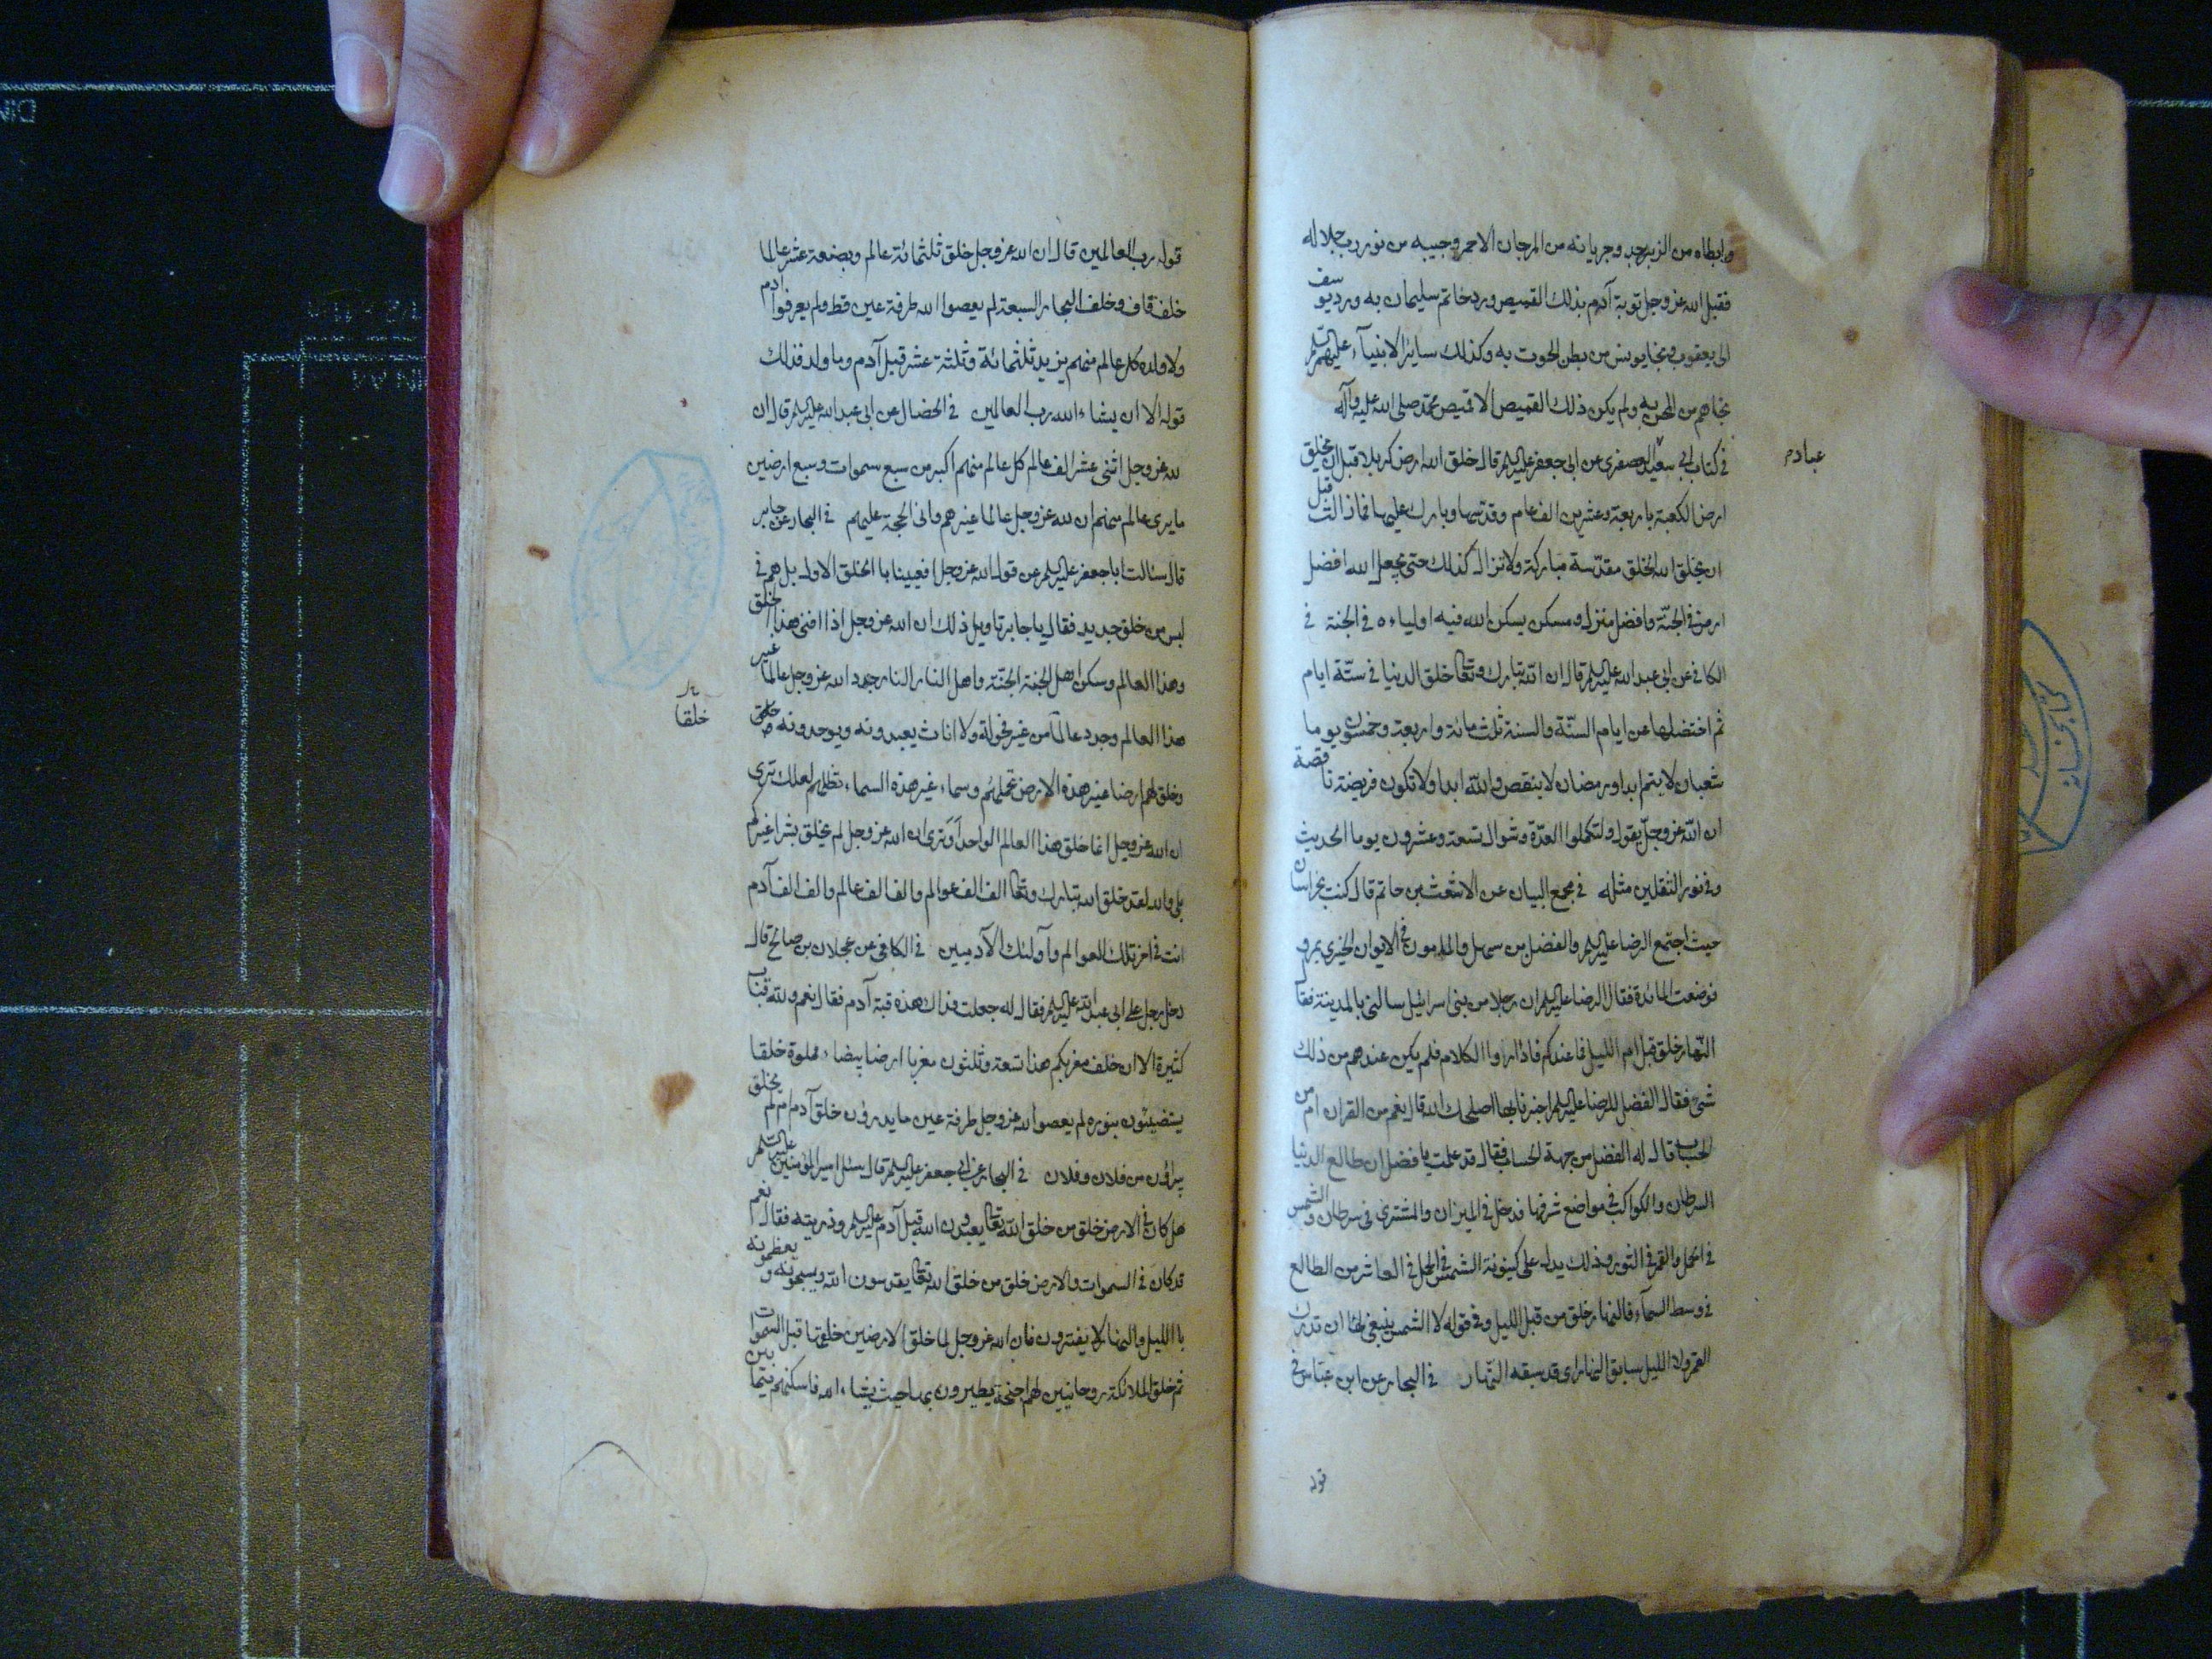 وابطاه من الزبرجد وجربانه من المرجان الاحمر وجيبه من نور رب جلاله
فقبل الله عز وجل توبة آدم بذلك القميص ورد خاتم سليمان به ورد يوسف
الى يعقوب ونجا يونس من بطن الحوت به وكذلك سائر الانبياء عليهم السلم
نجاهم من المحن به ولم يكن ذلك القميص الا قميص محمد صلى الله عليه وآله
في كتاب ابي سعيد العصفري عن ابي جعفر عليه السلم قال خلق الله ارض كربلا قبل ان يخلق
عباد م
ارض الكعبة باربعة وعشرين الف عام وقدسها وبارك عليها فما زالت قبل
ان يخلق الله الخلق مقدّسة مباركة ولا تزال كذلك حتى يجعل الله افضل
ارض في الجنّة وافضل منزل ومسكن يسكن الله فيه اولياءه في الجنة في
الكافي عن ابي عبد الله عليه السلم قال ان الله تبارك وتعالى خلق الدنيا في ستّة ايام
ثم اختزلها عن ايام السنّة والسنة ثلث مائة واربعة وخمسون يوما
شعبان لا يتم ابدا ورمضان لا ينقص والله ابدا ولا تكون فريضة ناقصة
ان الله عز وجلّ يقول ولتكملوا العدّة وشوال تسعة وعشرون يوما الحديث
وفي نور الثقلين مثله في مجمع البيان عن الاشعث بن حاتم قال كنت بخراسان
حيث اجتمع الرضا عليه السلم والفضل بن سهل والمامون في الايوان الحيري بمرو
فوضعت المائدة فقال الرضا عليه السلم ان رجلا من بني اسرائيل سالني بالمدينة فقال
النّهار خلق قبل ام الليل فما عندكم فاذاروا الكلام فلم يكن عندهم من ذلك
شئ فقال الفضل للرضا عليه السلم اخبرنا بها اصلحك الله قال نعم من القران ام من
الحساب قال له الفضل من جهة الحساب فقال قد علمت يا فضل ان طالع الدنيا
السرطان والكواكب في مواضع شرفها فدخل في الميزان والمشترى في سرطان والشمس
في الحمل والقمر في الثور وذلك يدل على كينونة الشمس في الحمل في العاشر من الطالع
في وسط السمآء فالنهار خلق من قبل الليل وفي قوله لا الشمس ينبغي لها ان تدرك
القمر ولا الليل سابق النهار اي قد سبقه النّهار في البحار عن ابن عباس في
قوله
قوله رب العالمين قال ان الله عز وجل خلق ثلثمائة عالم وبضعة عشر عالما
خلف قاف وخلف البحار السبعة لم يعصوا الله طرفة عين قط ولم يعرفوا ادم
ولا ولده كل عالم منهم يزيد ثلثمائة وثلثة عشر قبل آدم وما ولد فذلك
قوله الا ان يشاء الله رب العالمين في الخصال عن ابي عبد الله عليه السلم قال ان
لله عز وجل اثنى عشر الف عالم كل عالم منهم اكبر من سبع سموات وسبع ارضين
ما يرى عالم منهم ان لله عز وجل عالما غيرهم وانى الحجة عليهم في البحار عن جابر
قال سئالت ابا جعفر عليه السلم عن قول الله عز وجل افعيينا بالخلق الاول بل هم في
لبس من خلق جديد فقال يا جابر تاويل ذلك ان الله عز وجل اذا افنى هذا الخلق
وهذا العالم وسكن اهل الجنة الجنّة واهل النار النار جدد الله عز وجل عالما غير
هذا العالم وجدد عالما من غير فحولة ولا اناث يعبدونه ويوحدونه وخلق
خلقا
وخلق لهم ارضا غير هذه الارض تحملهم وسماء غير هذه السماء تظلهم لعلك ترى
ان الله عز وجل انما خلق هذا العالم الواحد او ترى ان الله عز وجل لم يخلق بشرا غيركم
بلى والله لقد خلق الله تبارك وتعالى الف الف عوالم والف الف عالم والف الف آدم
انت في اخر تلك العوالم وآولئك الآدميين في الكافي عن عجلان بن صالح قال
دخل رجل على ابي عبد الله عليه السلم فقال له جعلت فداك هذه قبة آدم فقال نعم ولله قباب
كثيرة الا ان خلف مغربكم هذا تسعة وثلثون مغربا ارضا بيضاء مملوة خلقا
يستضيئون بنوره لم يعصوا الله عز وجل طرفة عين ما يدرون خلق آدم ام لم يخلق
يبرؤن من فلان وفلان في البحار عن ابي جعفر عليه السلم قال سئل امير المؤمنين عليه السلم
هل كان في الارض خلق من خلق الله تعالى يعبدون الله قبل آدم عليه السلم وذريته فقال نعم
قد كان في السموات والارض خلق من خلق الله تعالى يقدسون الله ويسبحونه ويعظمونه
باالليل والنهار لا يفترون فان الله عز وجل لما خلق الارضين خلقها قبل السموات
ثم خلق الملائكة روحانيين لهم اجنحة يطيرون بها حيث يشاء الله فاسكنهم فيما بين